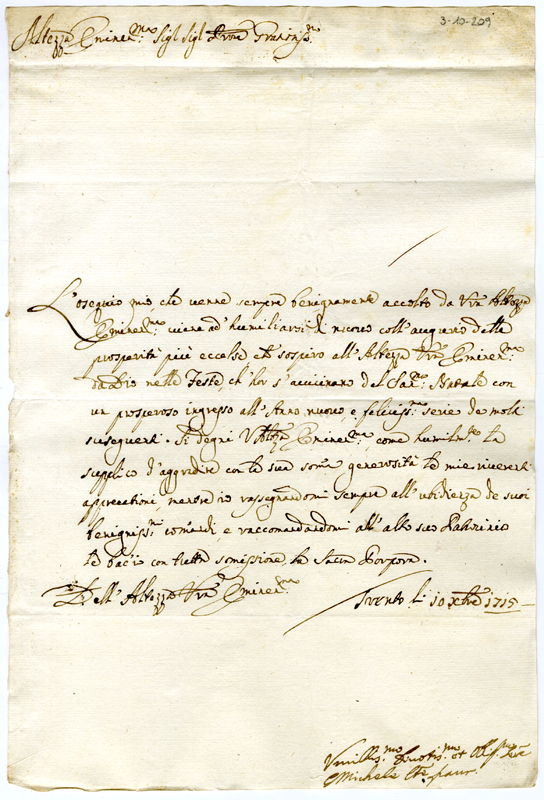 3-10-209
Altezza Eminen.ma Sig.r Sig.r Prone
L'osequio mio che venne sempre benignamente accolto da V.ra Altezza
Eminen.ma viene ad' humiliarsi di nuovo coll'augurio delle
prosperità più eccelse ch'sospiro all'Altezza V.ra Eminen.ma
da Dio nelle Feste, ch'hor s'avicinano del San.mo Natale con
un prosperoso ingresso all'Anno nuovo, e feliciss.ma serie de molti
susseguenti. Si degni V. Altezza Eminen.ma, come humilm.te la
supplico d'aggradire con la sua soma generosità le mie riverenti
apprecationi, mentre io rassegnandomi sempre all'ubidienza de suoi
benigniss.mi comandi e raccomandandomi all'alto suo Patrocinio
le bacio con tutta somissione la Sacra Porpora.
Dell'Altezza V.ra Eminen.ma
Trento li 10 Xbre 1715
Umiliss.mo Devotis.mo et Obl.mo
Michele